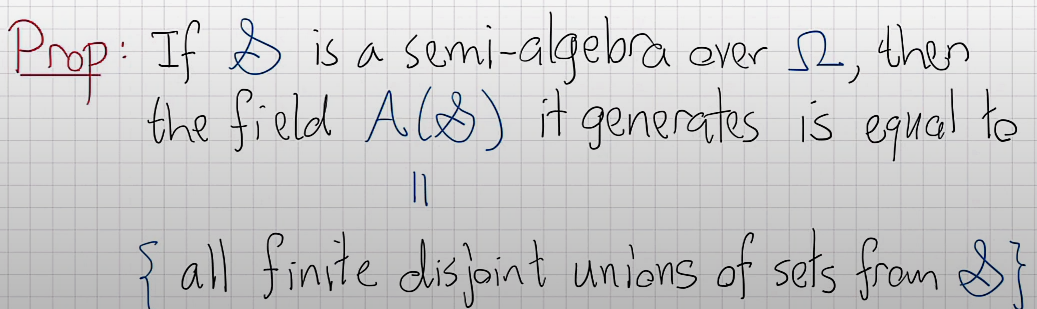 Prop: If 𝒮 is a semi-algebra over Ω, then
the field A(𝒮) it generates is equal to
||
{ all finite disjoint unions of sets from 𝒮}